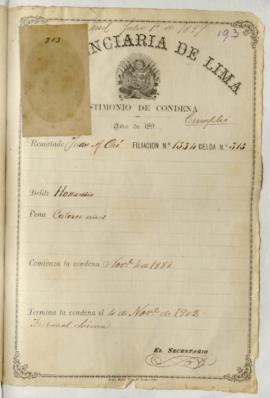 Julio 1º de 1897
193
313
NCIARIA DE LIMA
STIMONIO DE CONDENA
Cumplió
Año de 189
Rematado Juan M. FILIACION N.º 1334 CELDA N.º 313
Delito Homicidio
Pena Catorce años
Comienza la condena Novᵉ 4 de 188
Termina la condena el 4 de Novᵉ de 1902
Tribunal Lima
EL SECRETARIO